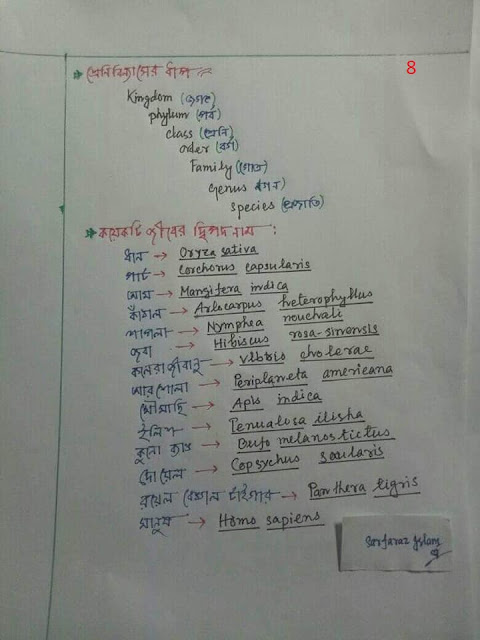 8
* শ্রেণিবিন্যাসের ধাপ
Kingdom (জগৎ)
phylum (পর্ব)
class (শ্রেণি)
order (বর্গ)
Family (গোত্র)
Genus (গণ)
species (প্রজাতি)
* কয়েকটি জীবের দ্বিপদ নাম :
ধান → Oryza sativa
পাট → Corchorus capsularis
আম → Mangifera indica
কাঁঠাল → Artocarpus heterophyllus
শাপলা → Nymphea nouchali
জবা → Hibiscus rosa-sinensis
কলেরা জীবাণু → Vibrio cholerae
আরশোলা → Periplaneta americana
মৌমাছি → Apis indica
ইলিশ → Tenualosa ilisha
কুনো ব্যাঙ → Bufo melanostictus
দোয়েল → Copsychus saularis
রয়েল বেঙ্গল টাইগার → Panthera tigris
মানুষ → Homo sapiens
Sarfaraz Islam